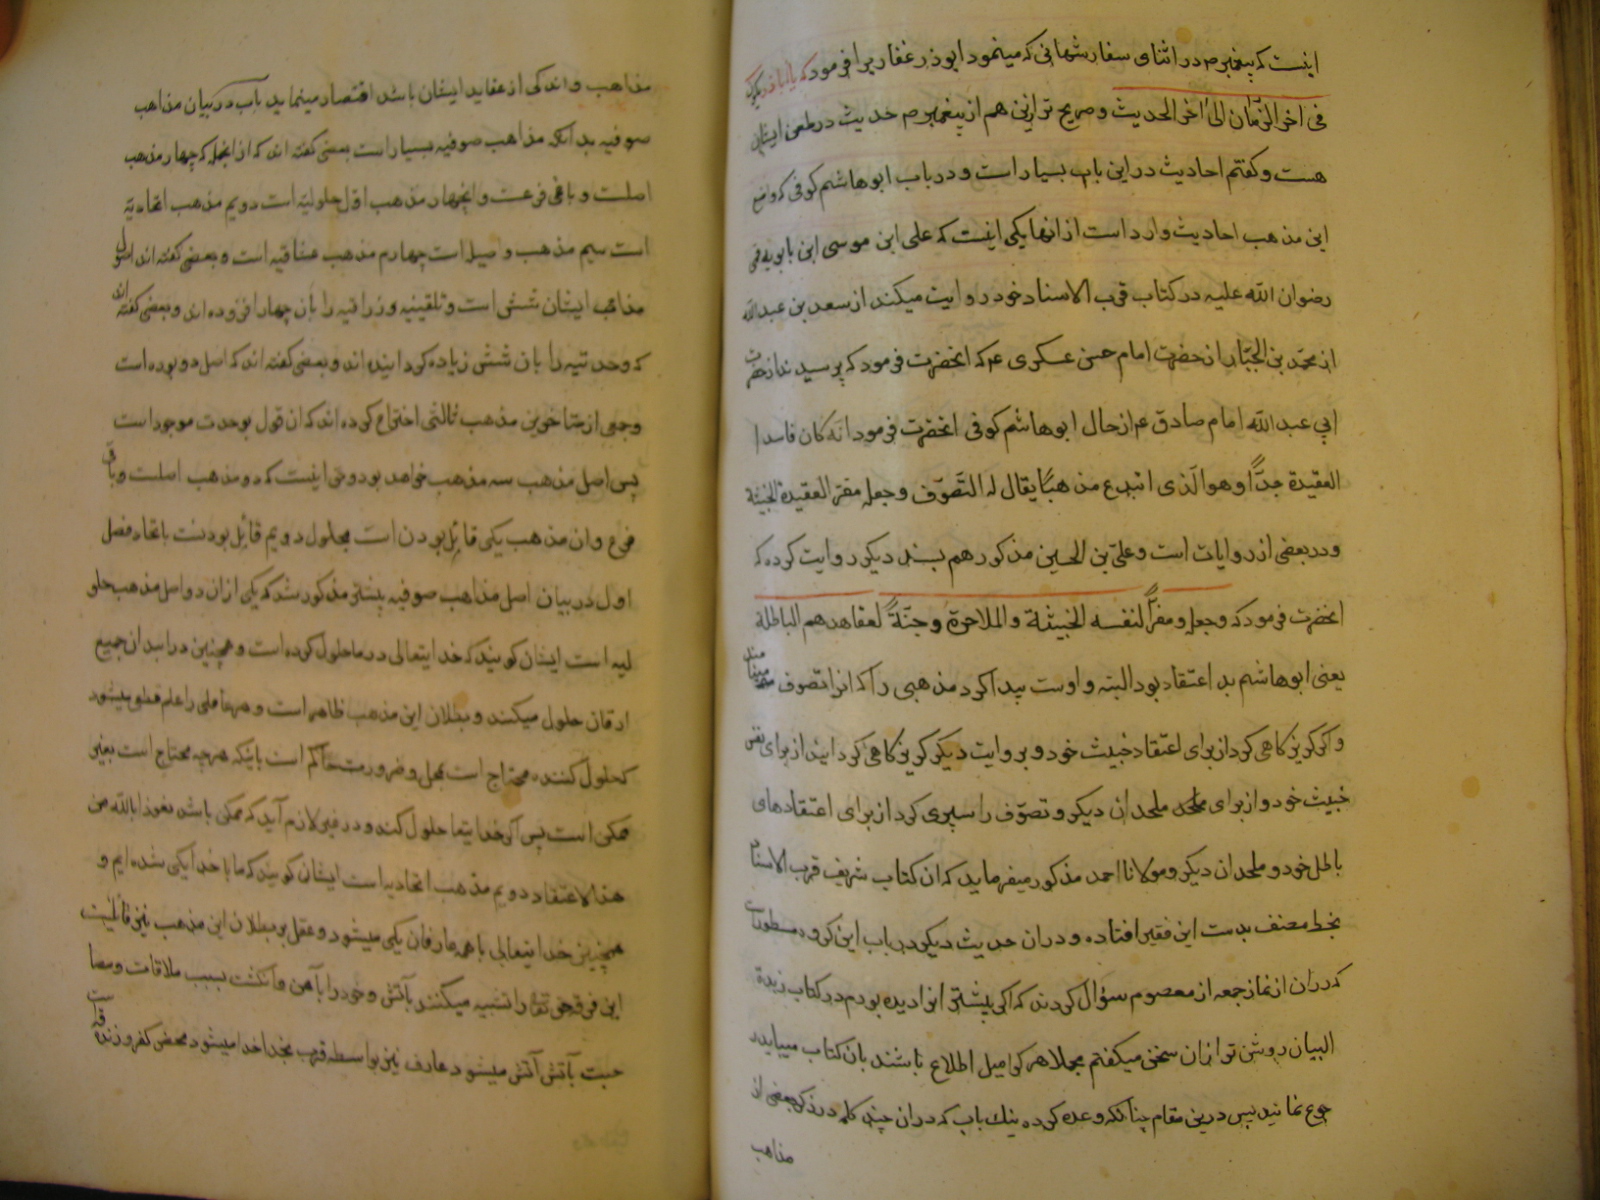 اینست که پیغمبر ص در اثنای سفارشهائی که مینمود ابوذر غفاریرا فرمود که یا اباذر یکون
فی اخر الزمان الی اخر الحدیث و صریح تر ازین هم از پیغمبر ص حدیث در طعن ایشان
هست و کفتم احادیث در این باب بسیار است و در باب ابو هاشم کوفی که واضع
این مذهب احادیث وارد است از انها یکی اینست که علی ابن موسی ابن بابویه قمی
رضوان الله علیه در کتاب قرب الاسناد خود روایت میکند از سعد بن عبدالله
از محمد بن الجبار از حضرت امام حسن عسکری ع که انحضرت فرمود که پرسیدند از حضرت
ابی عبدالله امام صادق ع از حال ابو هاشم کوفی انحضرت فرمود انه کان فاسد ا
العقیدة جدّاً و هو الّذی ابتدع مذهبًا یقال له التّصوّف و جعله مفرّ العقیدة الخبیثة
و در بعضی از روایات است و علیّ بن الحسین مذکور هم بسند دیکر روایت کرده که
انحضرت فرمود که و جعله مفرّاً لنفسه الخبیثة و الملاحدة و جنّةً لعقاهدهم الباطلة
یعنی ابو هاشم بد اعتقاد بود البته و اوست پیدا کرد مذهبی را که انرا تصوف مینامند
و کرد کریزکاهی کرد از برای اعتقاد خبیث خود و بروایت دیکر کریزکاهی کردانید از برای نفس
خبیث خود و از برای ملحدان دیکر و تصوّف را سپری کرد از برای اعتقادهای
باطل خود و ملحدان دیکر و مولانا احمد مذکور میفرماید که ان کتاب شریف قرب الاسناد
بخط مصنف بدست این فقیر افتاده و در ان حدیث دیکر در باب این کروه مسطور است
که در ان از نماز جمعه از معصوم سؤال کردند که اکر پیشتر انرا دیده بودم در کتاب زبدة
البیان روشن تر از ان سخن میکفتم مجملا هر که را میل اطلاع باشد بان کتاب میباید ر
جوع نماند پس درین مقام چنانکه وعده کرده بیک باب که در ان چند کلمه در ذکر بعضی از
مذاهب
مذاهب و اندکی از عقاید ایشان باشد اقتصار مینماید باب در بیان مذاهب
صوفیه بدانکه مذاهب صوفیه بسیار است بعضی کفته اند که از انجمله چهار مذهب
اصلست و باقی فرعست و انچهار مذهب اوّل حلولیّه است دویم مذهب اتحادیّه
است سیم مذهب واصلیه است چهارم مذهب عشاقیه است و بعضی کفته اند اصول
مذاهب ایشان شش است و تلقینیه و زراقیه را بان چهار افزوده اند و بعضی کفته اند
که وحدتیه را بان شش زیاده کردانیده اند و بعضی کفته اند که اصل دو بوده است
و جمعی از متاخرین مذهب ثالثی اختراع کرده اند که ان قول بوحدت موجود است
پس اصل مذهب سه مذهب خواهد بود و حق اینست که دو مذهب اصلست و باقی
فرع و ان مذهب یکی قائل بودن است بحلول دویم قائل بودنست باتحاد فصل
اول در بیان اصل مذاهب صوفیه پیشتر مذکور شد که یکی از ان دو اصل مذهب حلو
لیه است ایشان کویند که خدایتعالی در ما حلول کرده است و همچنین در ابدان جمیع
عارفان حلول میکند و بطلان این مذهب ظاهر است و هر عاقلی را علم قطعی میشود
که حلول کننده محتاج است بمحل و ضرورت حاکم است باینکه هر چه محتاج است بغیر
ممکن است پس اکر خدایتعا حلول کند و در غیر لازم آید که ممکن باشد نعوذ بالله من
هذا الاعتقاد دویم مذهب اتحادیه است ایشان کویند که ما با خدا یکی شده ایم و
همچنین خدایتعالی با همه عارفان یکی میشود و عقل بر بطلان این مذهب نیز
این فرقه را تشبیه میکنند بآتش و خود را بآهن و انکشت بسبب ملاقات و مصا
حبت بآتش آتش میشود عارف نیز بواسطه قرب بخدا خدا میشود محض کفر و زندقه است